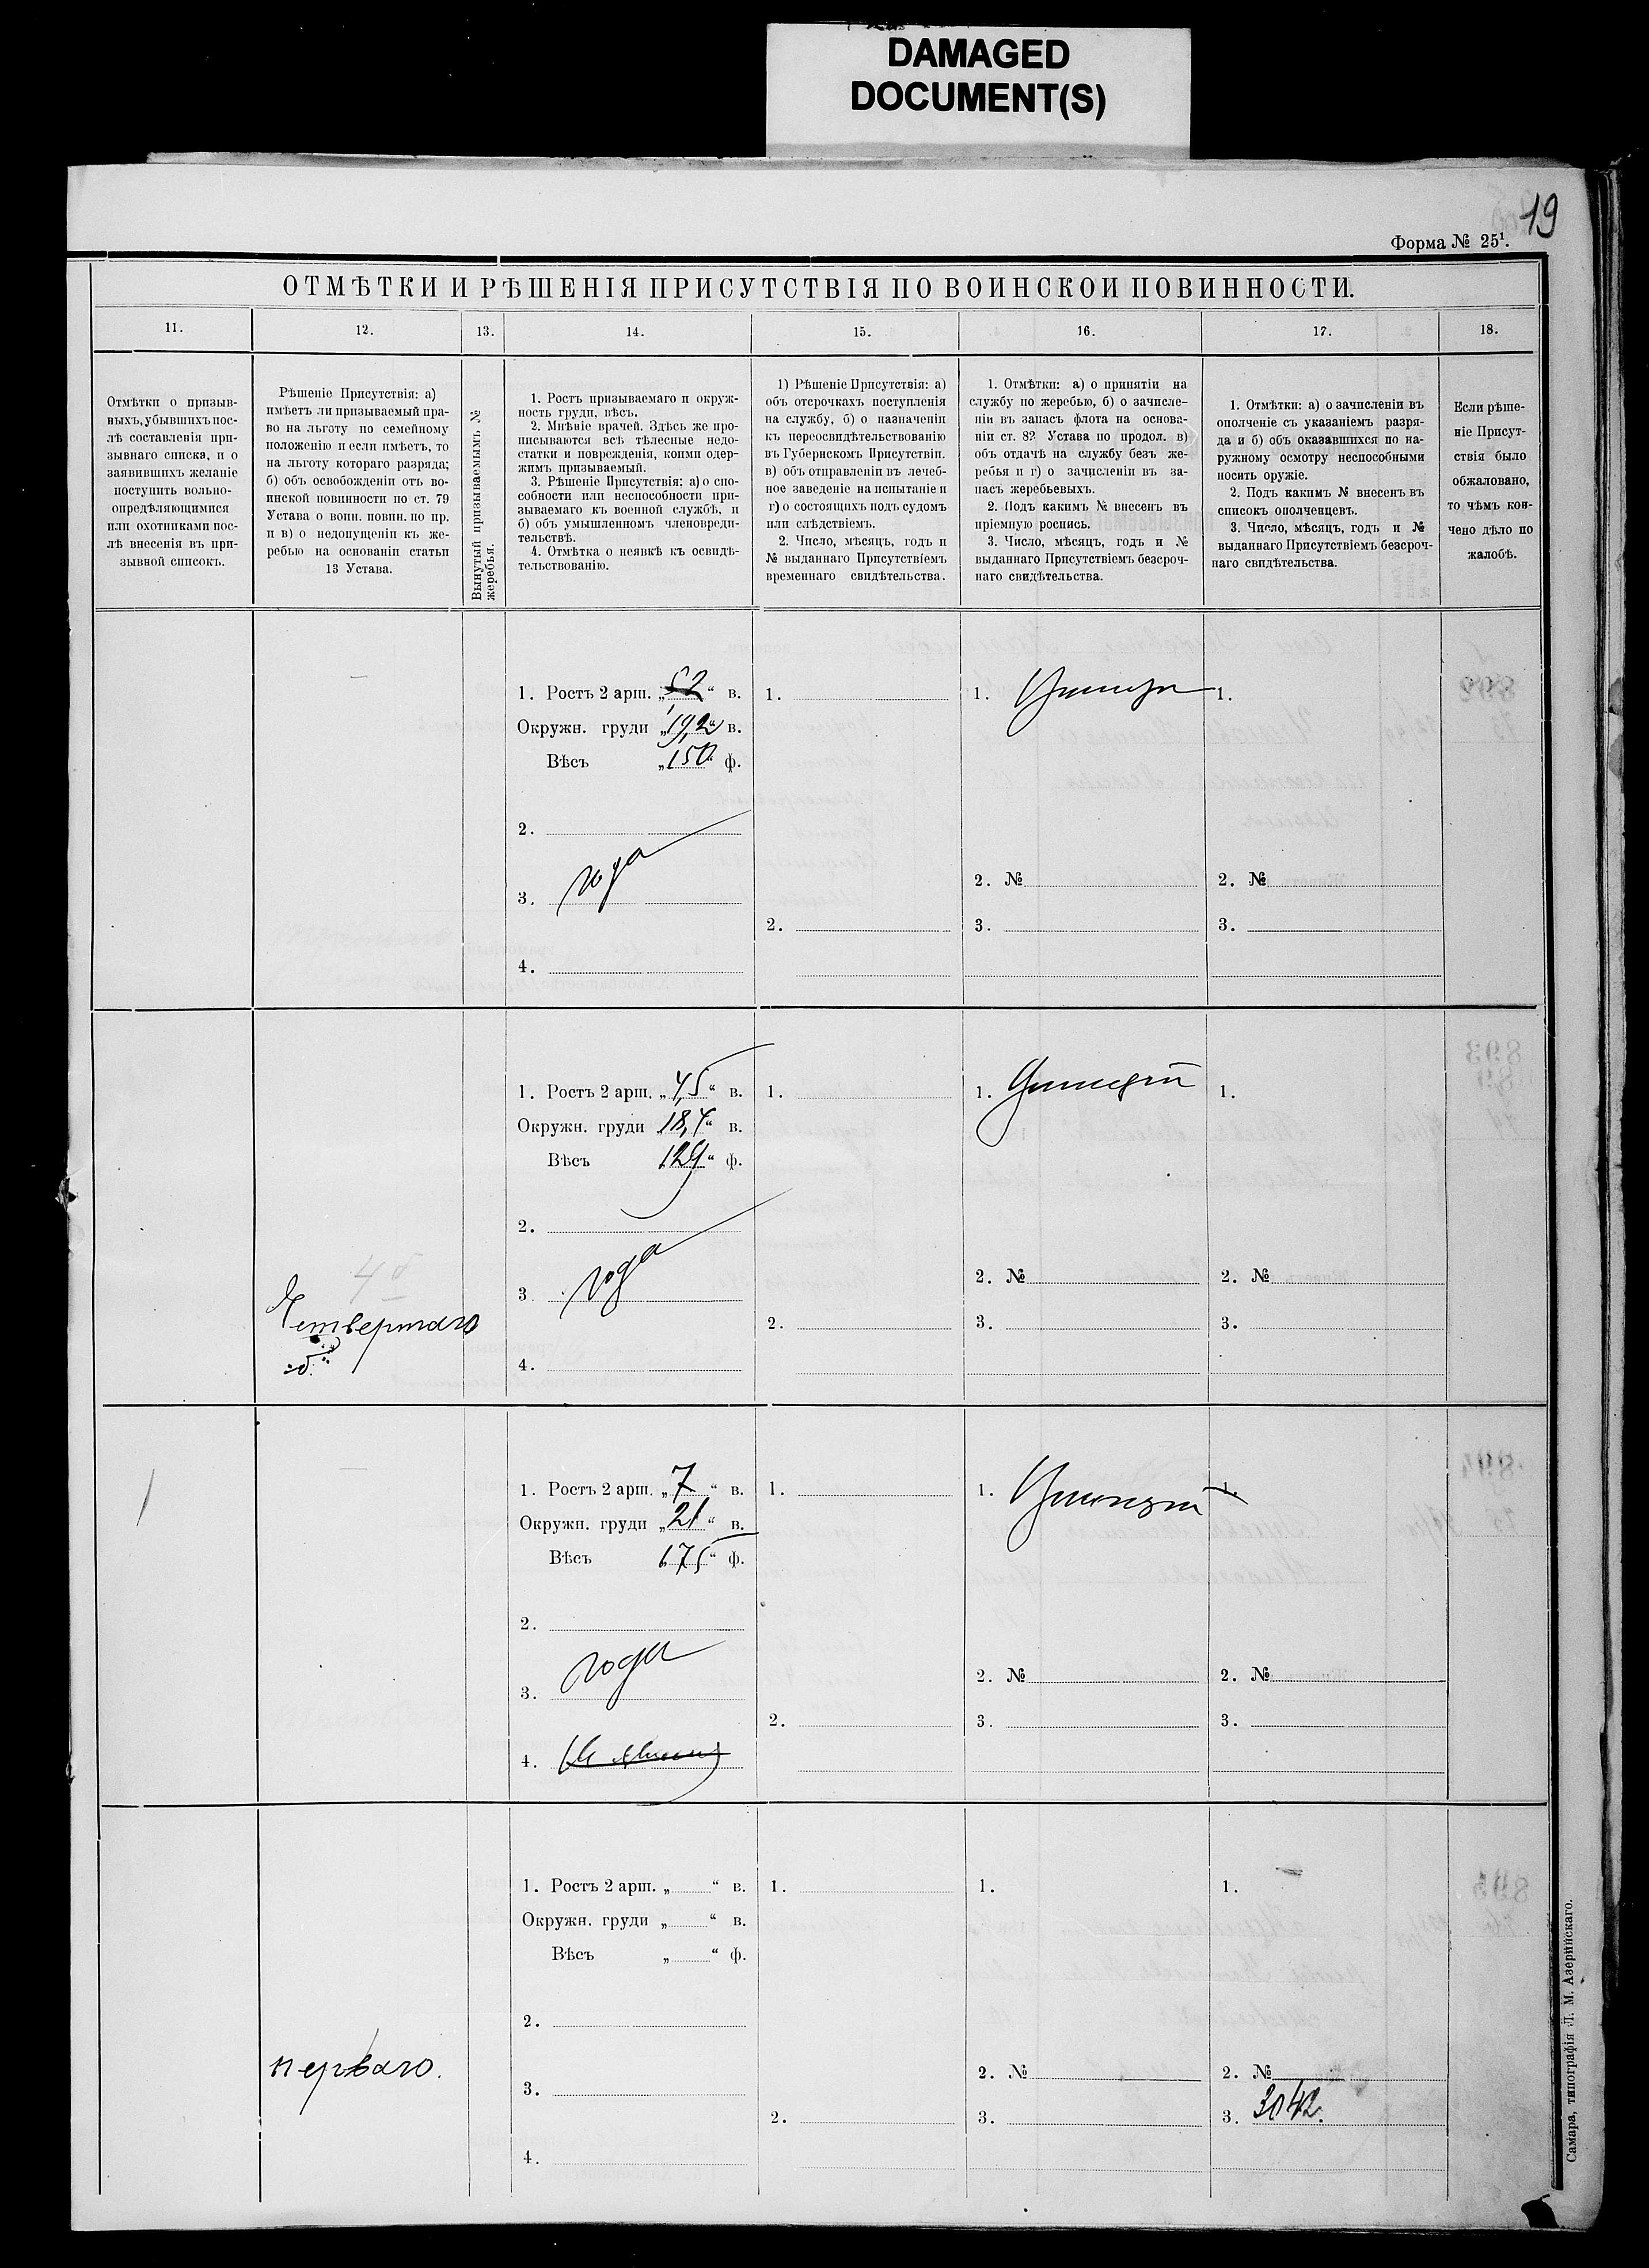 DAMAGED
DOCUMENT(S)
19
Форма № 25¹.
ОТМѢТКИ И РѢШЕНІЯ ПРИСУТСТВІЯ ПО ВОИНСКОЙ ПОВИННОСТИ.
11.
12.
13.
14.
15.
16.
17.
18.
Отмѣтки о призыв-
ныхъ, убывшихъ пос-
лѣ составленія при-
зывнаго списка, и о
заявившихъ желаніе
поступить вольно-
опредѣляющимися
или охотниками пос-
лѣ внесенія въ при-
зывной списокъ.
Рѣшеніе Присутствія: а)
имѣетъ ли призываемый пра-
во на льготу по семейному
положенію и если имѣетъ, то
на льготу котораго разряда;
б) объ освобожденіи отъ во-
инской повинности по ст. 79
Устава о воин. повин. по пр.
п в) о недопущеніи къ же-
ребью на основаніи статьи
13 Устава.
Вынутый призываемымъ №
жеребья.
1. Ростъ призываемаго и окруж-
ность груди, вѣсъ.
2. Мнѣніе врачей. Здѣсь же про-
писываются всѣ тѣлесные недо-
статки и поврежденія, коими одер-
жимъ призываемый.
3. Рѣшеніе Присутствія: а) о спо-
собности или неспособности при-
зываемаго къ военной службѣ, и
б) объ умышленномъ членовреди-
тельствѣ.
4. Отмѣтка о неявкѣ къ освидѣ-
тельствованію.
1) Рѣшеніе Присутствія: а)
объ отсрочкахъ поступленія
на службу, б) о назначеніи
къ переосвидѣтельствованію
въ Губернскомъ Присутствіи.
в) объ отправленіи въ лечеб-
ное заведеніе на испытаніе и
г) о состоящихъ подъ судомъ
или слѣдствіемъ.
2. Число, мѣсяцъ, годъ и
№ выданнаго Присутствіемъ
временнаго свидѣтельства.
1. Отмѣтки: а) о принятіи на
службу по жеребью, б) о зачисле-
ніи въ запасъ флота на основа-
ніи ст. 82 Устава по продол. в)
объ отдачѣ на службу безъ же-
ребья и г) о зачисленіи въ за-
пасъ жеребьевыхъ.
2. Подъ какимъ № внесенъ въ
пріемную роспись.
3. Число, мѣсяцъ, годъ и №
выданнаго Присутствіемъ безсроч-
наго свидѣтельства.
1. Отмѣтки: а) о зачисленіи въ
ополченіе съ указаніемъ разря-
да и б) объ оказавшихся по на-
ружному осмотру неспособными
носить оружіе.
2. Подъ какимъ № внесенъ въ
списокъ ополченцевъ.
3. Число, мѣсяцъ, годъ и №
выданнаго Присутствіемъ безсроч-
наго свидѣтельства.
Если рѣше-
ніе Присут-
ствія было
обжаловано,
то чѣмъ кон-
чено дѣло по
жалобѣ.
1. Ростъ 2 арш. „ “ в.
Окружн. груди „19,2“ в.
Вѣсъ „150“ ф.
2.
3. года
4.
1.
2.
1.
2. №
3.
1.
2. №
3.
Четвертаго
„б“
1. Ростъ 2 арш. „4,5“ в.
Окружн. груди „18,4“ в.
Вѣсъ „129“ ф.
2.
3. года
4.
1.
2.
1.
2. №
3.
1.
2. №
3.
1. Ростъ 2 арш. „7“ в.
Окружн. груди „21“ в.
Вѣсъ „175“ ф.
2.
3. года
4.
1.
2.
1.
2. №
3.
1.
2. №
3.
перваго.
1. Ростъ 2 арш. „ “ в.
Окружн. груди „ “ в.
Вѣсъ „ “ ф.
2.
3.
4.
1.
2.
1.
2. №
3.
1.
2. №
3. 3042.
Самара, типографія Л. М. Азерийскаго.